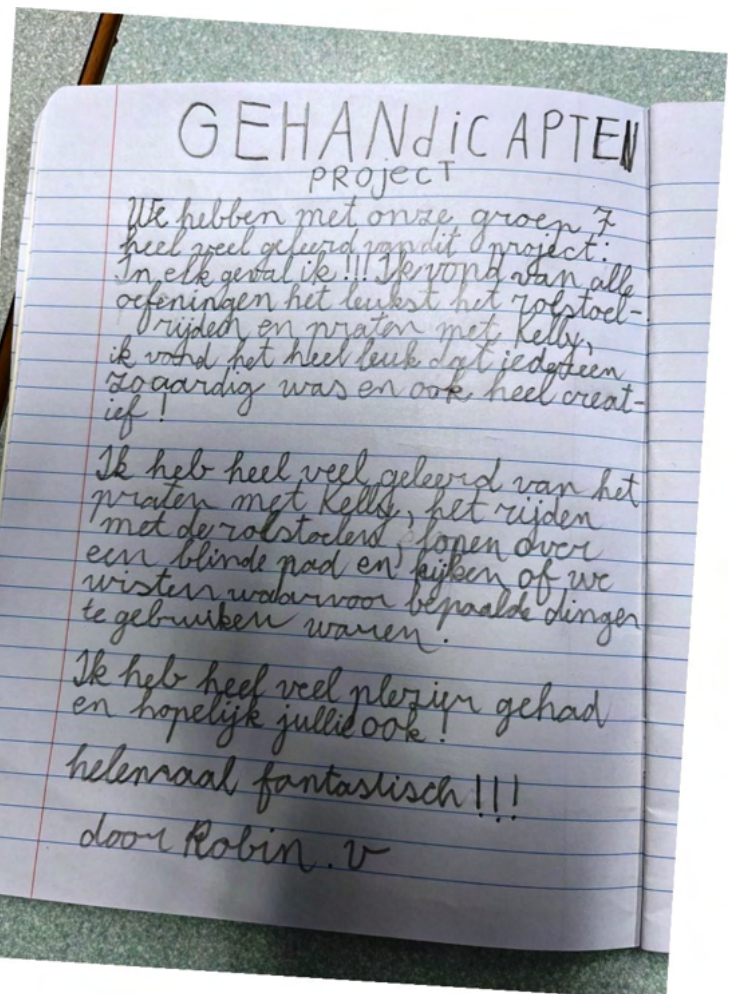 GEHANdiCAPTEN
PROjeCT
We hebben met onze groep 7
heel veel geleerd van dit project:
In elk geval ik !!! Ik vond van alle
oefeningen het leukst het rolstoel-
rijden en praten met Kelly,
ik vond het heel leuk dat iedereen
zo aardig was en ook heel creat-
ief !
Ik heb heel veel geleerd van het
praten met Kelly, het rijden
met de rolstoelen, lopen over
een blinde pad en kijken of we
wisten waarvoor bepaalde dingen
te gebruiken waren.
Ik heb heel veel plezier gehad
en hopelijk jullie ook !
helemaal fantastisch !!!
door Robin. v